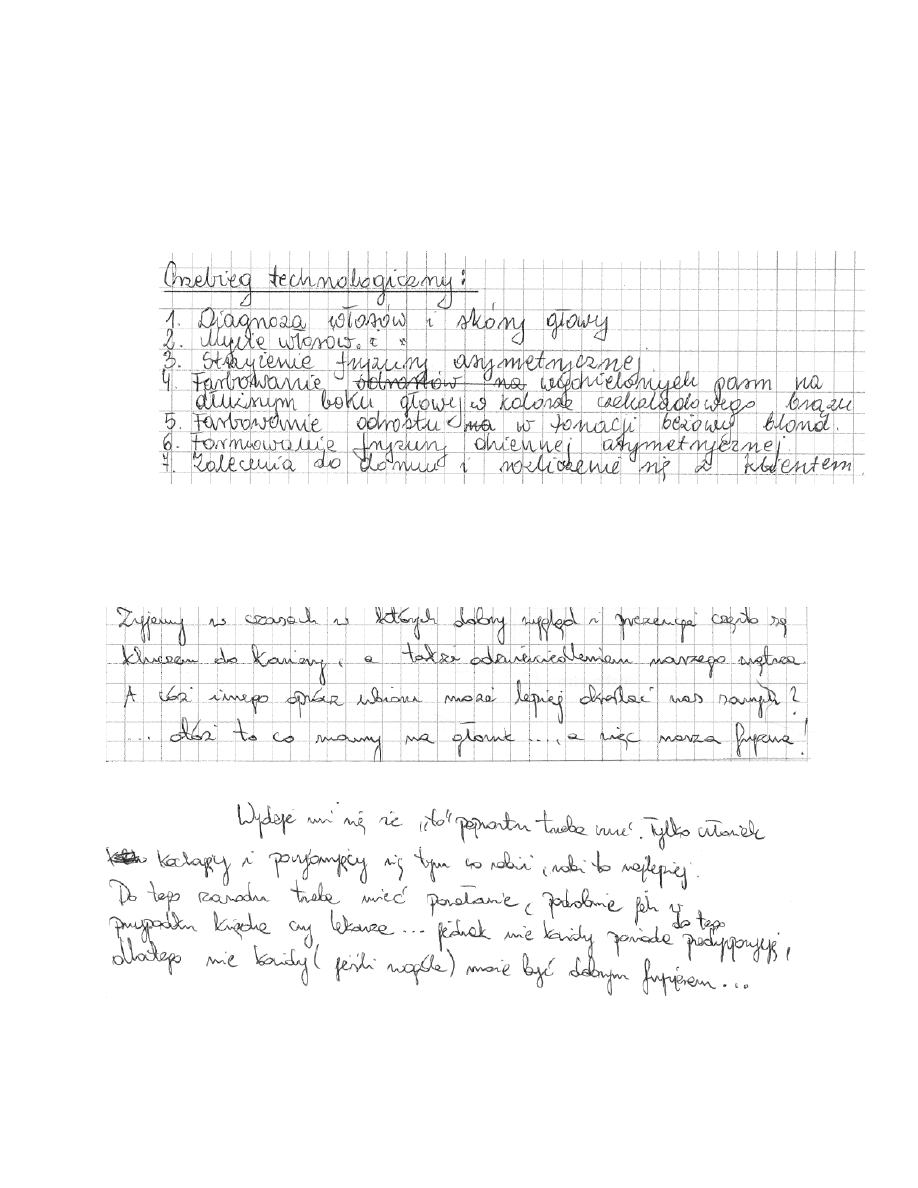 Przebieg technologiczny:
1. Diagnoza włosów i skóry głowy
2. Mycie włosów.
3. Strzyżenie fryzury asymetrycznej.
4. Farbowanie odrostów na wydzielonych pasm na
dłuższym boku głowy w kolorze czekoladowego brązu
5. Farbowanie odrostu na w tonacji beżowy blond.
6. Formowanie fryzury dziennej asymetrycznej.
7. Zalecenia do domu i rozliczenie się z klientem
Żyjemy w czasach w których dobry wygląd i prezencja często są
kluczem do kariery, a także odzwierciedleniem naszego wnętrza.
A cóż innego oprócz ubioru może lepiej określać nas samych?
... otóż to co mamy na głowie ...., a więc nasza fryzura!
Wydaje mi się że "to" poprostu trzeba mieć. Tylko człowiek
kochający i pasjonujący się tym co robi, robi to najlepiej.
Do tego zawodu trzeba mieć powołanie, podobnie jak w
przypadku księdza czy lekarza ... jednak nie każdy posiada do tego predyspozycje,
dlatego nie każdy (jeśli wogóle) może być dobrym fryzjerem...